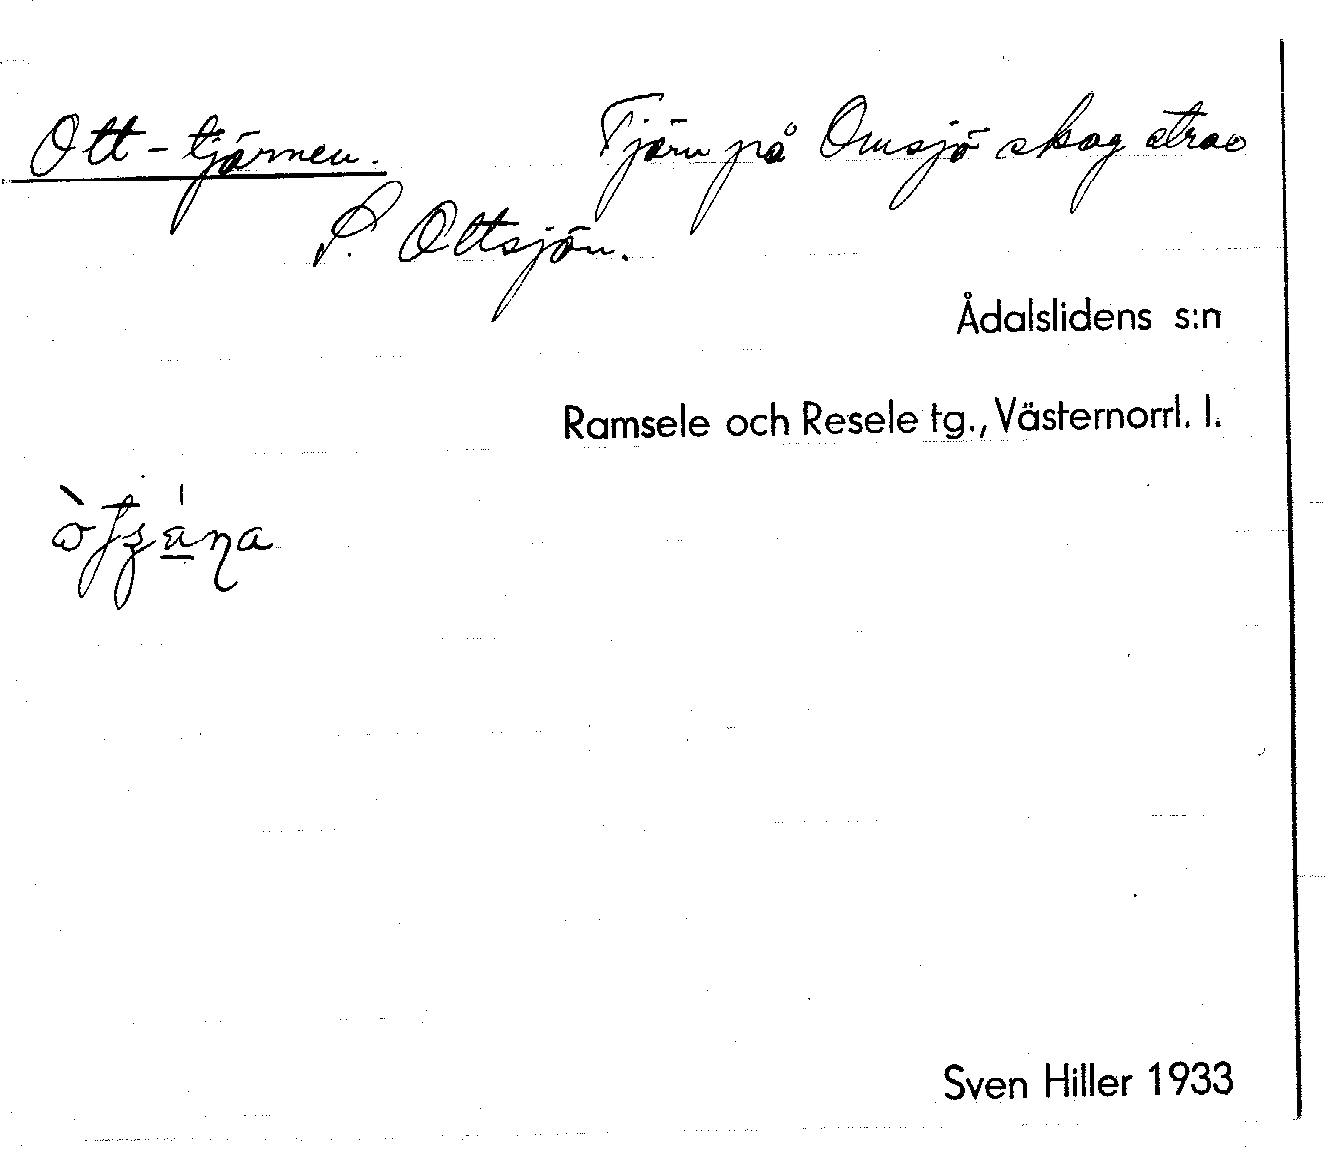 Ott-tjärnen. Tjärn på Omsjö skog strax
S. Ottsjön.
Ådalslidens s:n
Ramsele och Resele tg., Västernorrl. l.
Sven Hiller 1933